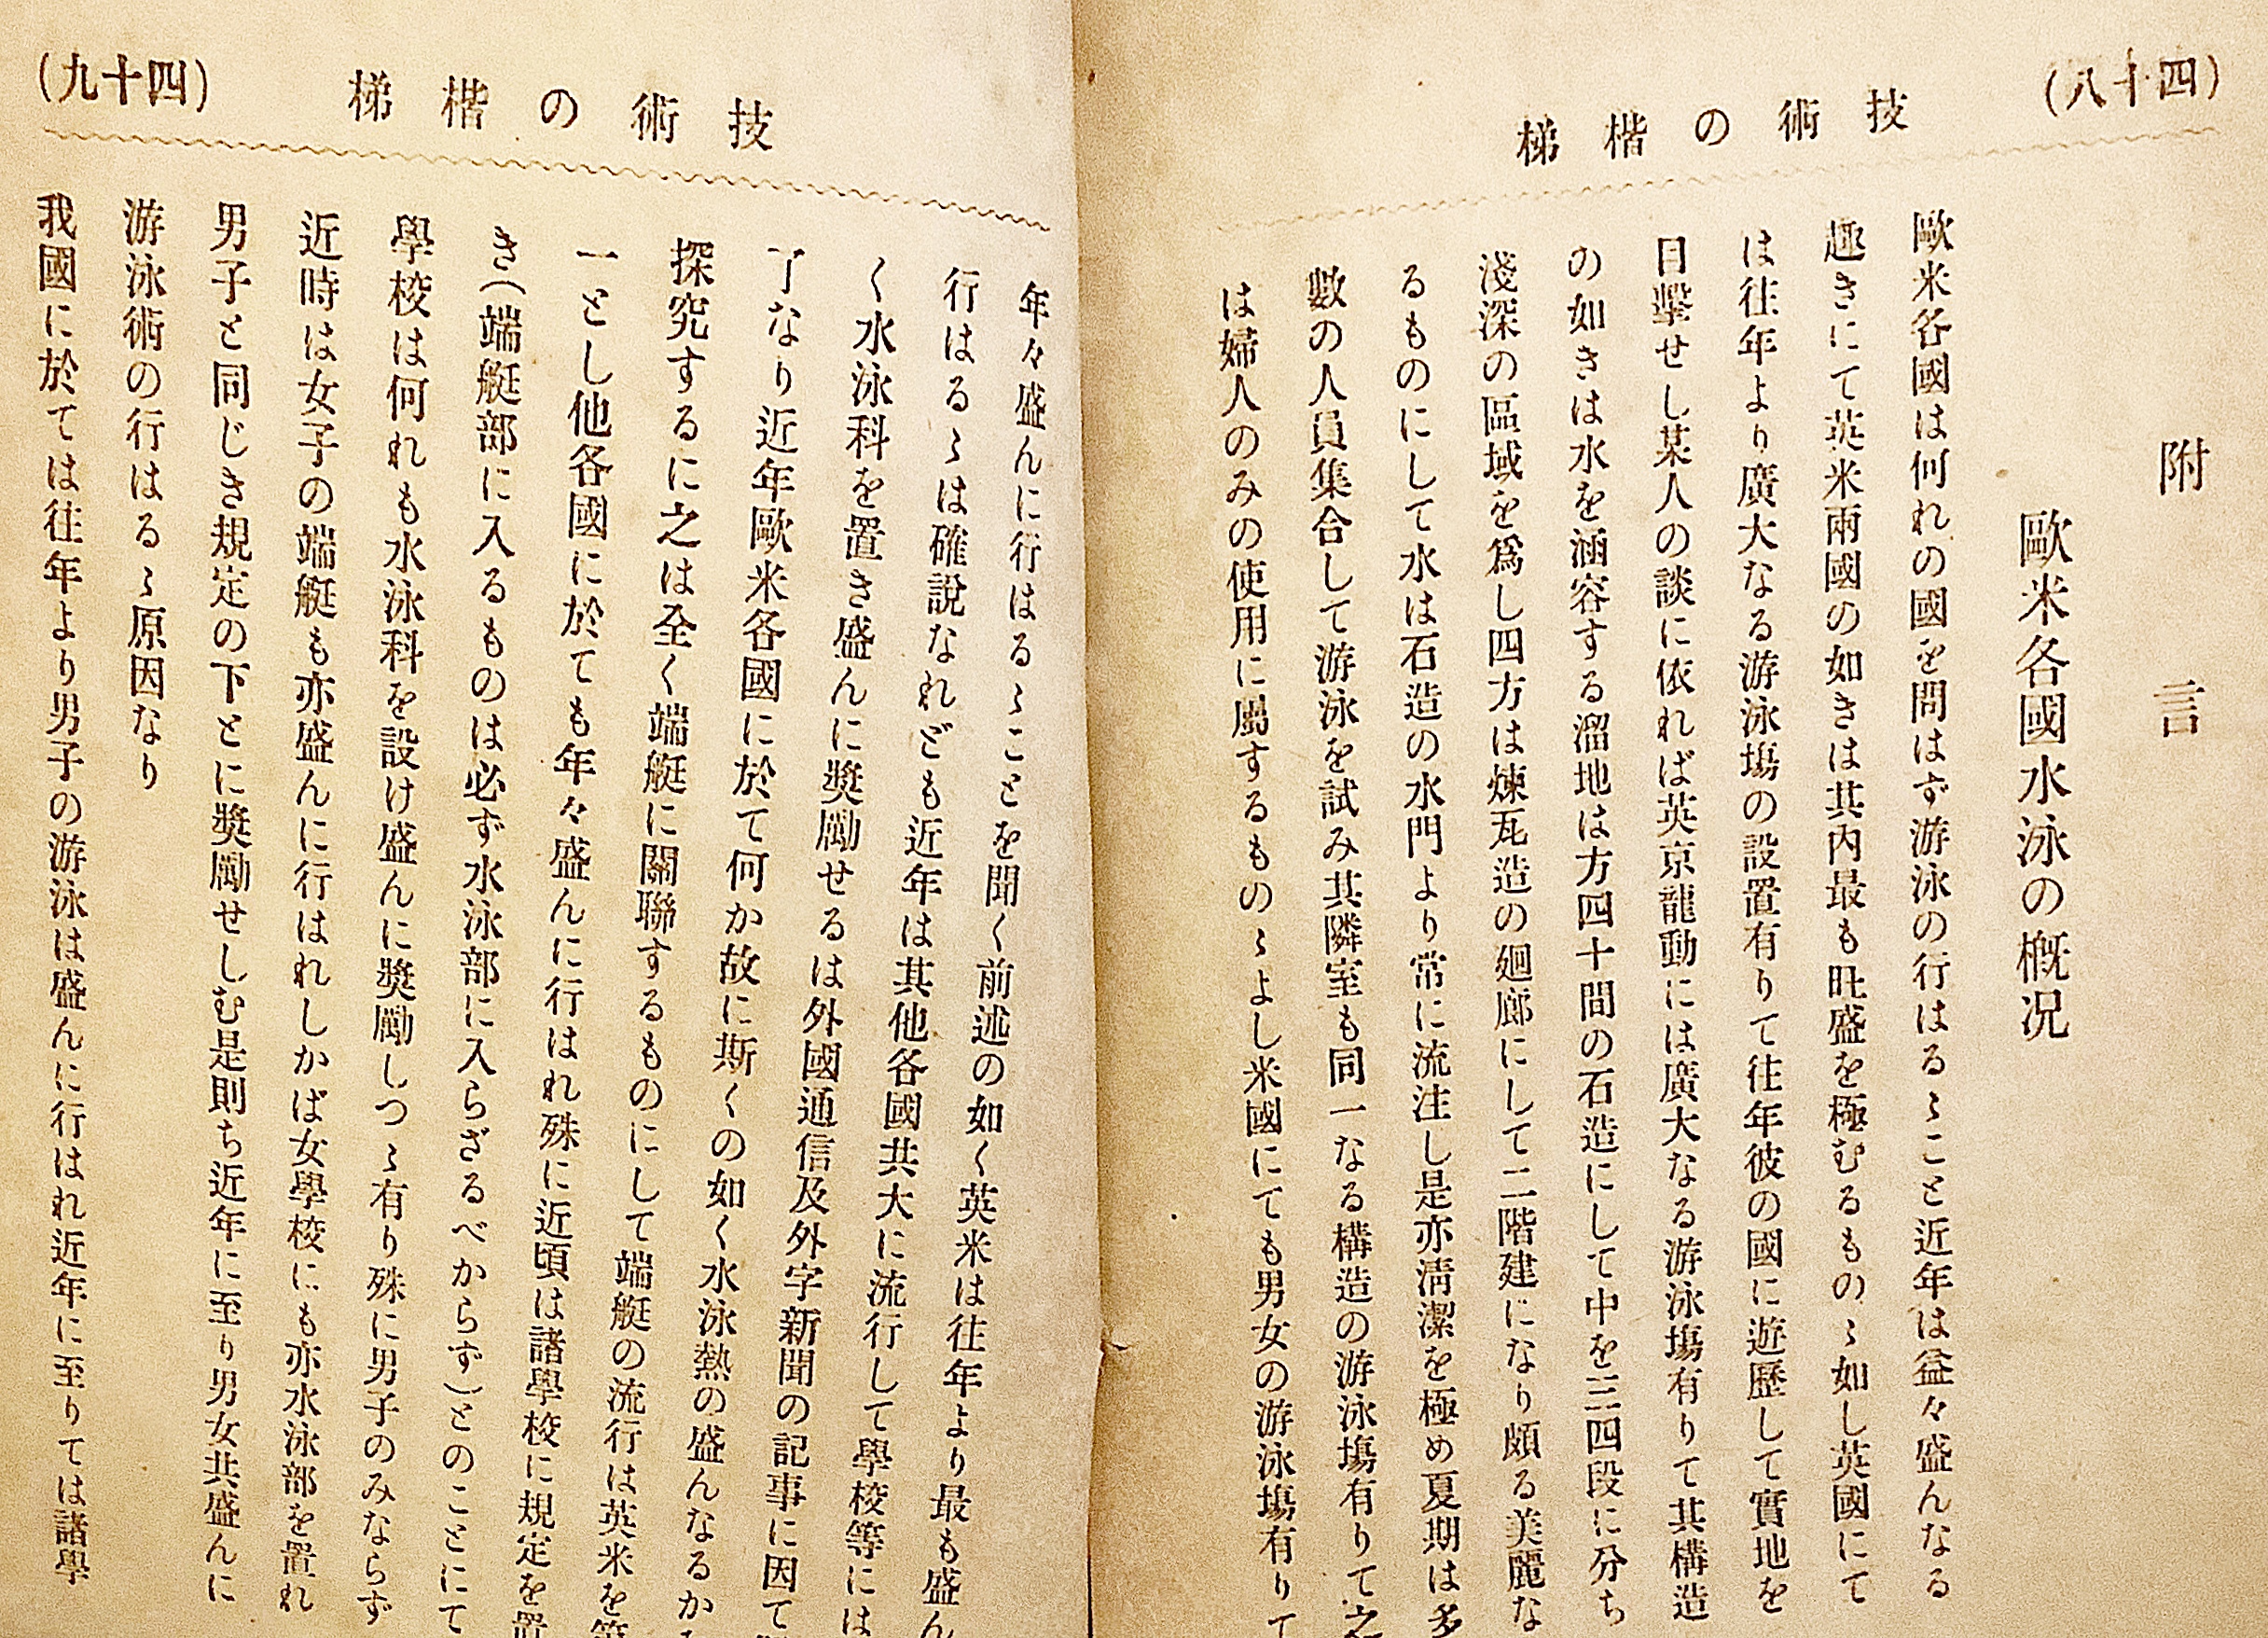 (八十四)
技術の楷梯
附言
歐米各國水泳の概况
歐米各國は何れの國を問はず游泳の行はるゝこと近年は益々盛んなる
趣きにて英米兩國の如きは其内最も旺盛を極むるものゝ如し英國にて
は往年より廣大なる游泳塲の設置有りて往年彼の國に遊歷して實地を
目擊せし某人の談に依れば英京龍動には廣大なる游泳塲有りて其構造
の如きは水を涵容する溜地は方四十間の石造にして中を三四段に分ち
淺深の區域を爲し四方は煉瓦造の廻廊にして二階建になり頗る美麗な
るものにして水は石造の水門より常に流注し是亦淸潔を極め夏期は多
數の人員集合して游泳を試み其隣室も同一なる構造の游泳塲有りて之
は婦人のみの使用に屬するものゝよし米國にても男女の游泳塲有りて
(九十四)
技術の楷梯
年々盛んに行はるゝことを聞く前述の如く英米は往年より最も盛ん
行はるゝは確說なれども近年は其他各國共大に流行して學校等には
く水泳科を置き盛んに奬勵せるは外國通信及外字新聞の記事に因て
了なり近年歐米各國に於て何か故に斯くの如く水泳熱の盛んなるか
探究するに之は全く端艇に關聯するものにして端艇の流行は英米を
一とし他各國に於ても年々盛んに行はれ殊に近頃は諸學校に規定を置
き(端艇部に入るものは必ず水泳部に入らざるべからず)とのことにて
學校は何れも水泳科を設け盛んに奬勵しつゝ有り殊に男子のみならず
近時は女子の端艇も亦盛んに行はれしかば女學校にも亦水泳部を置れ
男子と同じき規定の下とに奬勵せしむ是則ち近年に至り男女共盛んに
游泳術の行はるゝ原因なり
我國に於ては往年より男子の游泳は盛んに行はれ近年に至りては諸學